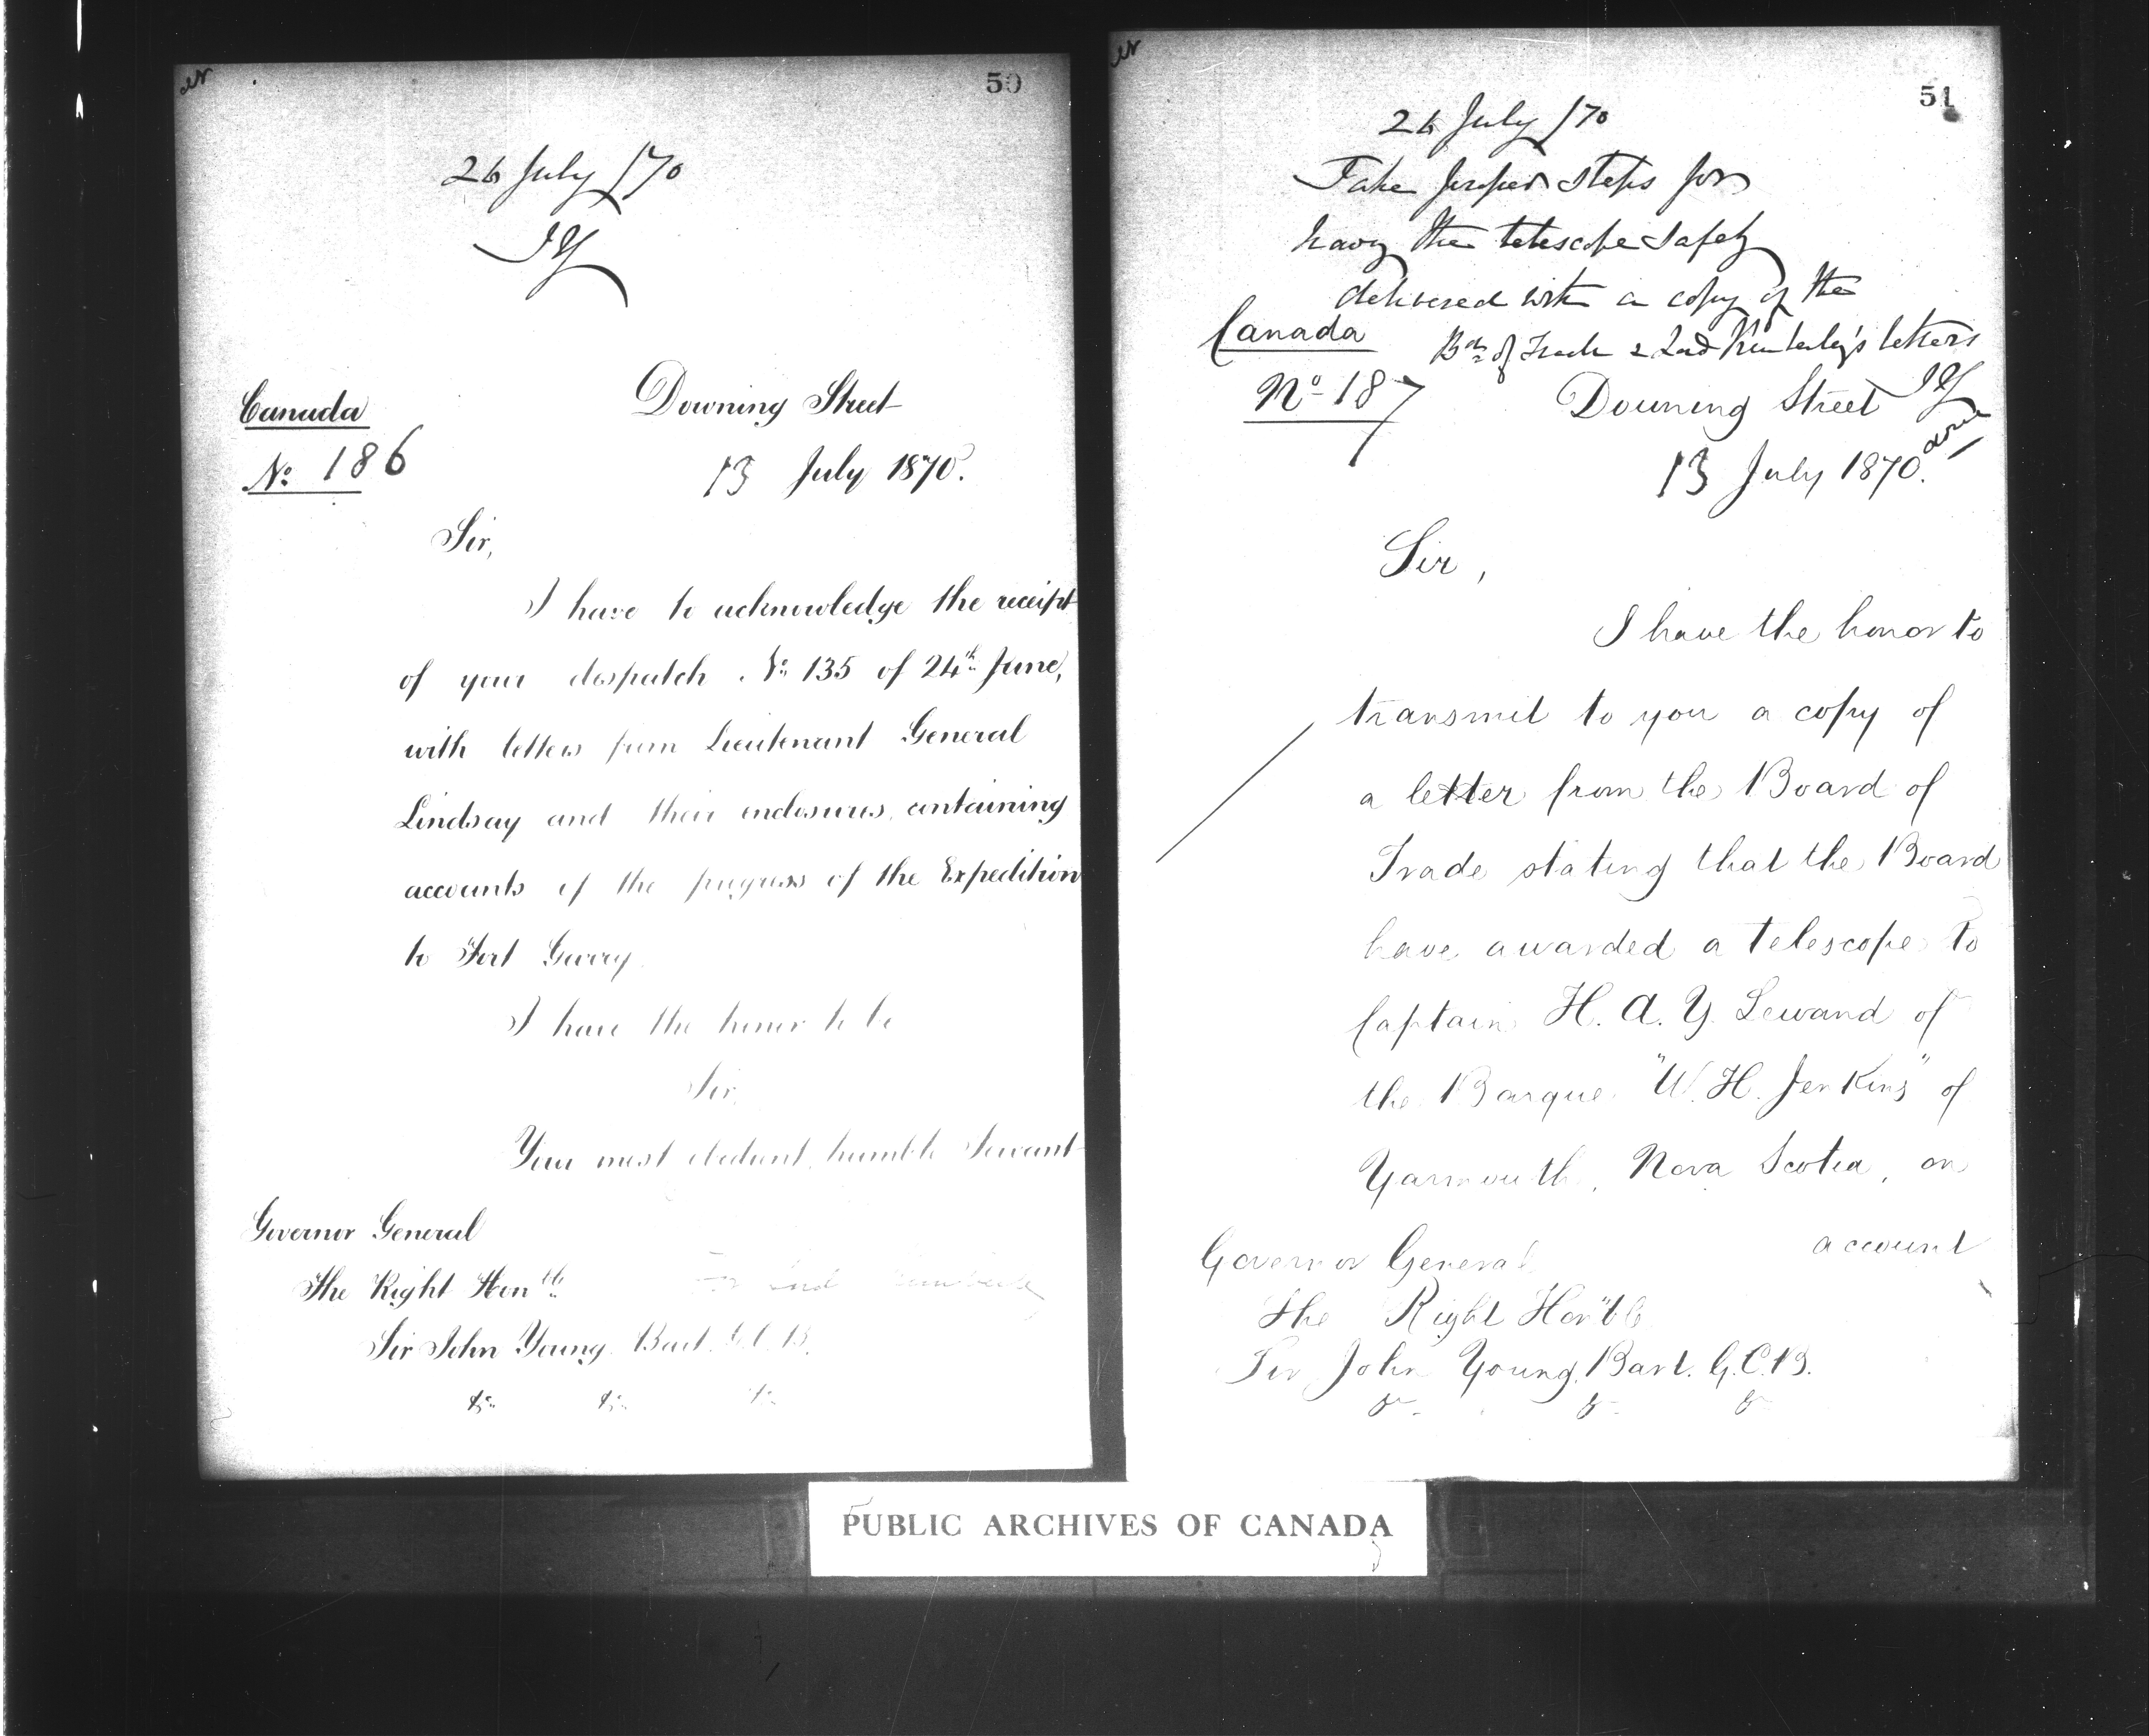 50
26 July /70
JY
Canada
No. 186
Downing Street
13 July 1870.
Sir,
I have to acknowledge the receipt
of your despatch No. 135 of 24th June,
with letters from Lieutenant General
Lindsay and their enclosures, containing
accounts of the progress of the Expedition
to Fort Garry.
I have the honor to be
Sir,
Your most obedient humble Servant
Governor General
The Right Honble
Sir John Young Bart. G.C.B.
&c. &c. &c.
51
26 July /70
Take proper steps for
having the telescope safely
delivered with a copy of the
Bd. of Trade & Lord Kimberley's letters
JY
done
Canada
No. 187
Downing Street
13 July 1870.
Sir,
I have the honor to
transmit to you a copy of
a letter from the Board of
Trade stating that the Board
have awarded a telescope to
Captain H. A. Y. Lewand of
the Barque "W. H. Jenkins" of
Yarmouth, Nova Scotia, on
account
Governor General
The Right Honble
Sir John Young, Bart. G.C.B.
&c. &c. &c.
PUBLIC ARCHIVES OF CANADA